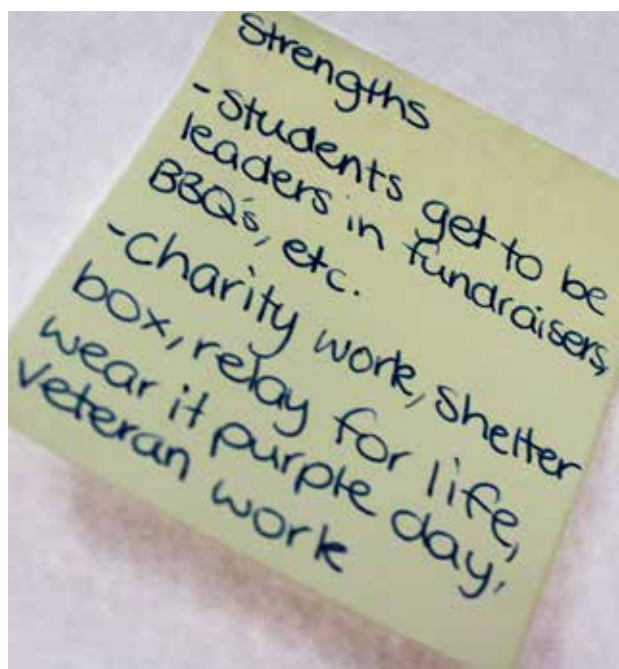 Strengths
- Students get to be
leaders in fundraisers,
BBQ's, etc.
- Charity work, shelter
box, relay for life,
wear it purple day,
veteran work